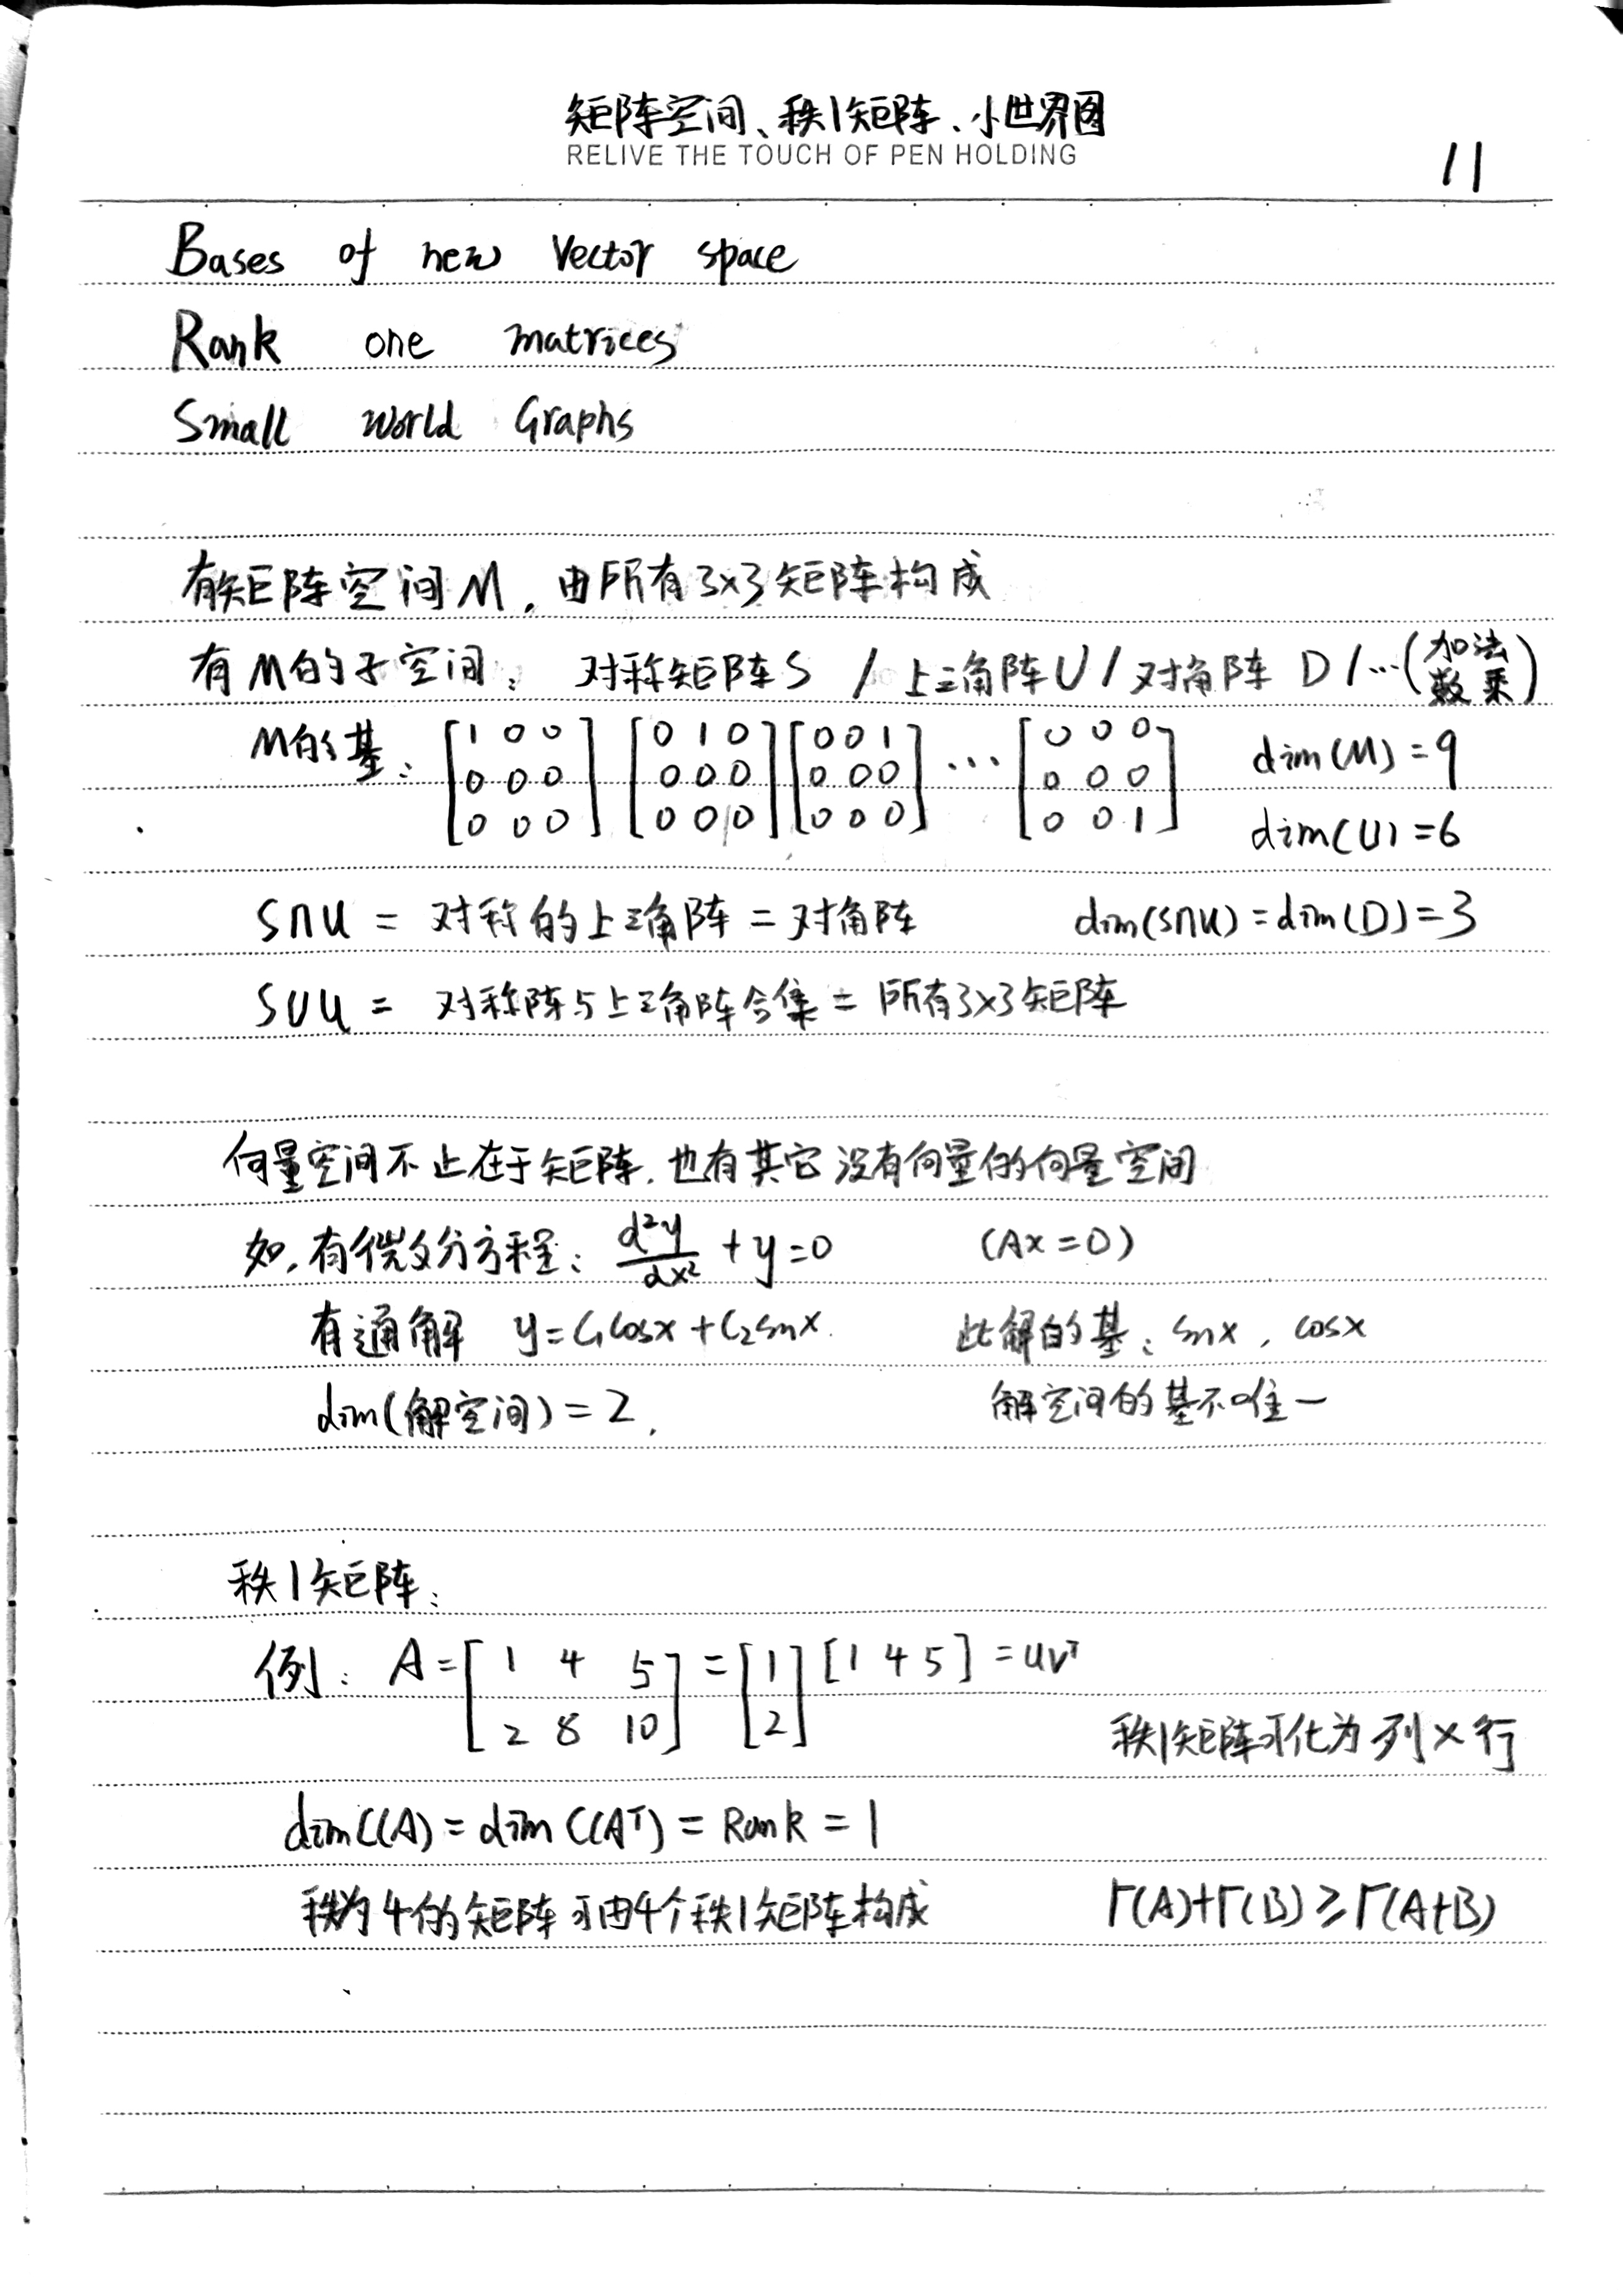 矩阵空间、秩1矩阵、小世界图
RELIVE THE TOUCH OF PEN HOLDING
11
Bases of new Vector space
Rank one matrices
Small world Graphs
有矩阵空间M，由所有3×3矩阵构成
有M的子空间：对称矩阵S / 上三角阵U / 对角阵 D / …(加法 数乘)
M的基：[1 0 0; 0 0 0; 0 0 0] [0 1 0; 0 0 0; 0 0 0] [0 0 1; 0 0 0; 0 0 0] … [0 0 0; 0 0 0; 0 0 1] dim(M)=9
dim(U)=6
S∩U = 对称的上三角阵 = 对角阵 dim(S∩U)=dim(D)=3
S∪U = 对称阵与上三角阵合集 = 所有3×3矩阵
向量空间不止在于矩阵，也有其它没有向量的向量空间
如，有微分方程：d²y/dx² + y = 0 (Ax=0)
有通解 y=C₁cosx+C₂sinx. 此解的基：sinx，cosx
dim(解空间)=2. 解空间的基不唯一
秩1矩阵：
例：A=[1 4 5; 2 8 10]=[1; 2][1 4 5]=uvᵀ
秩1矩阵可化为列×行
dimC(A)=dimC(Aᵀ)=Rank=1
秩为4的矩阵可由4个秩1矩阵构成 r(A)+r(B)≥r(A+B)